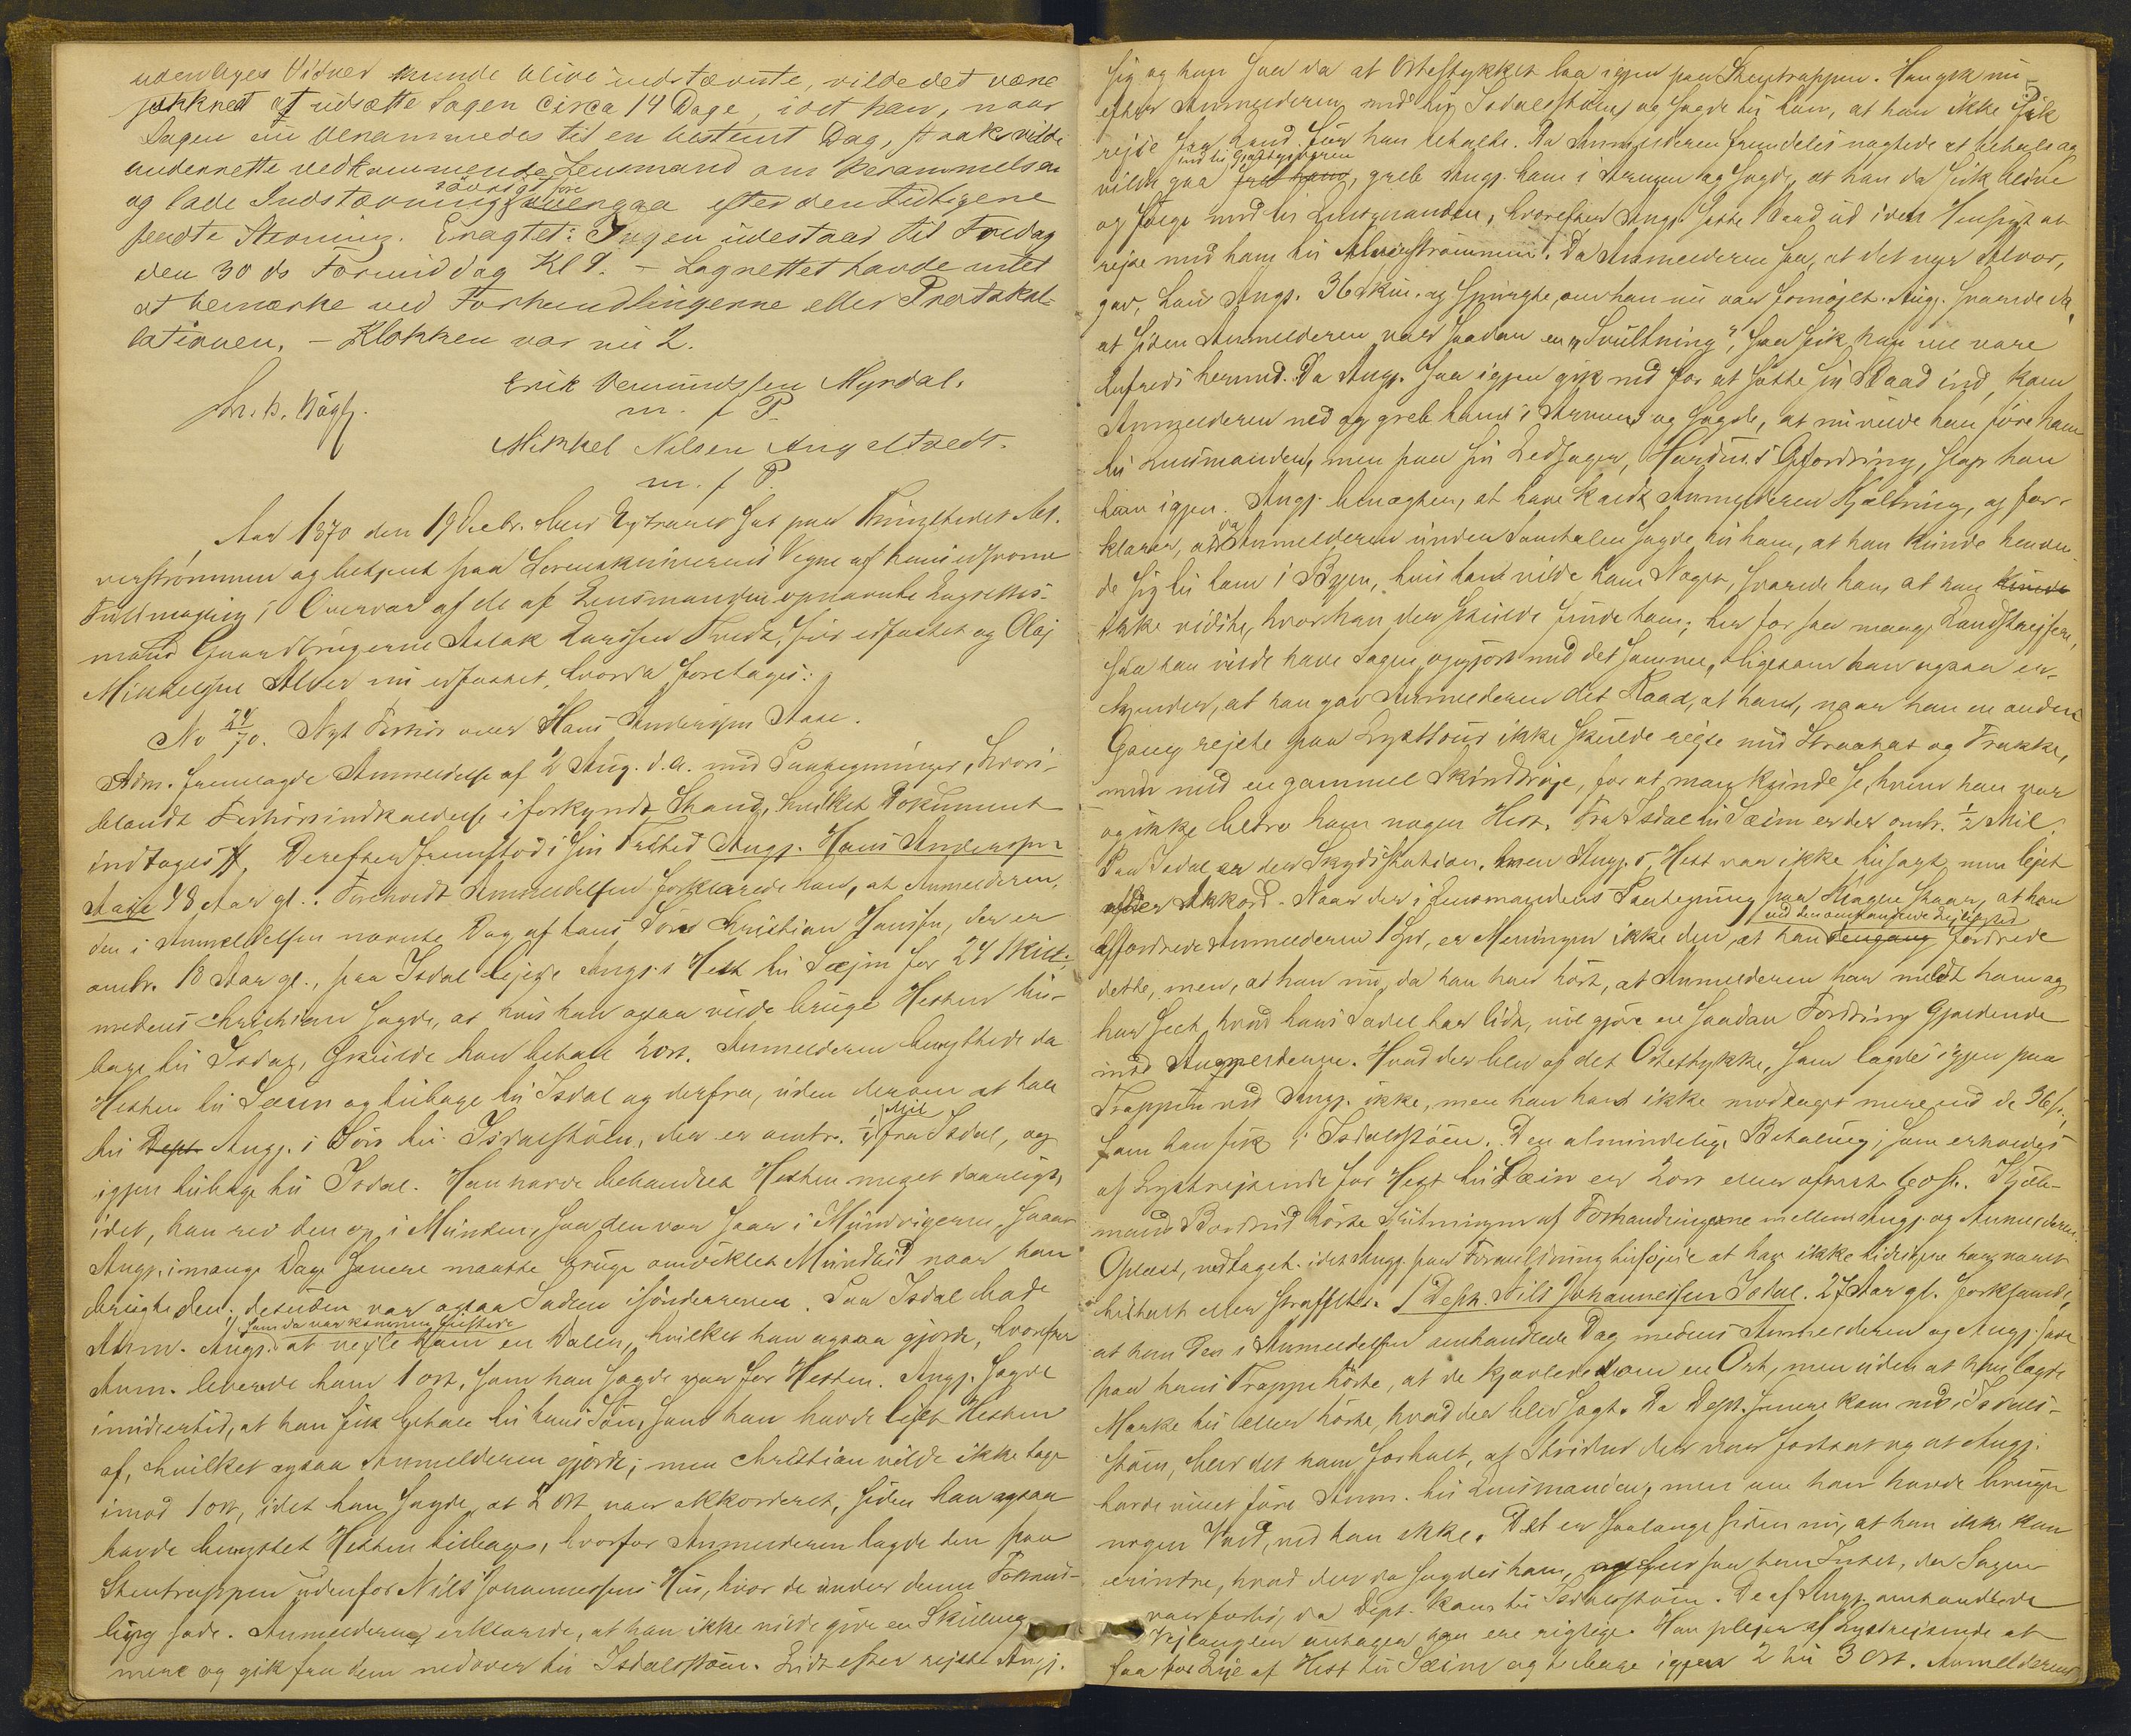 udenbyes Vidner kunde blive indstævnte, vilde det være
at udsætte Sagen Circa 14 Dage, idet han, naar
Sagen nu berammedes til en bestemt Dag, strak vilde
underrette vedkommende Lensmand om Berammelsen
og lade Indstævning foregaa efter den tidligere
sendte Stevning. Eragtet: Sagen udestaar til Fredag
den 30 ds Formiddag Kl 9. – Lagrettet havde intet
at bemærke ved Forhandlingerne eller Protokol-
lationen. – Klokken var nu 2.
Erik Vemundssen Myrdal.
m. f P.
Mikkel Nilsen Angeltvedt.
m. f P.
Aar 1870 den 19 Decbr. blev Extraret sat paa Thingstedet Al-
verstrømmen og betjent paa Sorenskriverens Vegne af hans edsvorne
Fuldmægtig i Overvær af de af Lensmanden opnævnte Lagrettes-
mænd Gaardbrugerne Aslak Larssen Tvedt, før edfæstet og Olaj
Mikkelsen Alver nu edfæstet, hvorda foretages:
No 24/70. Nyt Forhør over Hans Anderssen Aase.
Adm. fremlagde Anmeldelse af 2 Aug. d. A. med Paategninger, hvori-
blandt Forhørsindkaldelse i forkyndt Stand, hvilket Dokument
indtages #. Derefter fremstod i sin Frihed Angj. Hans Anderssen
Aase 48 Aar gl. Foreholdt Anmeldelsen forklarede han, at Anmelderen,
den i Anmeldelsen nævnte Dag af hans Søn Kristian Hanssen, der er
omtr. 18 Aar gl., paa Isdal lejede Angj.s Hest til Sæjm for 24 Skill.,
medens Christian sagde, at hvis han ogsaa vilde bruge Hesten til-
bage til Isdal, skulde han betale 2 ort. Anmelderen benyttede da
Hesten til Sæim og tilbage til Isdal og derfra, uden derom at tale
til Dept. Angj.s Søn til Isdalstøen, der er omtr. 1/4 Mil fra Isdal, og
igjen tilbage til Isdal. Han havde behandlet Hesten meget daarligt,
idet, han rev den op i Munden, saa den var saar i Mundvigerne, saa at
Angj. i mange Dage senere maatte bruge omviklet Mundbid naar han
brugte den; desuden var ogsaa Sadlen isønderreven. Paa Isdal bad
Anm. Angj. som da var kommen tilstede at vexle ham en Daler, hvilket han ogsaa gjorde, hvorefter
Anm. leverede ham 1 ort, som han sagde var for Hesten. Angj. sagde
imidlertid, at han fik betale til hans Søn, som han havde lejet Hesten
af, hvilket ogsaa Anmelderen gjorde; men Christian vilde ikke tage
imod 1 ort, idet han sagde, at 2 ort var akkorderet, siden han ogsaa
havde benyttet Hesten tilbage, hvorfor Anmelderen lagde den paa
Stentrappen udenfor Nils Johannessens Hus, hvor de under denne Forhand-
ling sade. Anmelderen erklærede, at han ikke vilde give en Skilling
mere og gik fra dem nedover til Isdalstøen. Lidt efter rejste Angj.
sig og han saa da at Ortestykket laa igjen paa Stentrappen. Han gik nu
efter Anmelderen ned til Isdalsstøen og sagde til ham, at han ikke fik
rejse fra Land før han betalte. Da Anmelderen fremdeles nægtede at betale og
vilde gaa ind til Gjæstgiveren, greb Angj. ham i Armen og sagde, at han da fik blive
og følge med til Lensmanden, hvorefter Angj. satte Baad ud i den Hensigt at
rejse med ham til Alverstrømmen. Da Anmelderen saa, at det var Alvor,
gav han Angj. 36 Skill. og spurgte, om han nu var fornøjet. Angj. svarede da,
at siden Anmelderen var saadan en "Svultning", saa fik han nu være
tilfreds hermed. Da Angj. saa igjen gik ned for at sætte sin Baad ind, kom
Anmelderen ned og greb ham i Armen og sagde, at nu vilde han føre ham
til Lensmanden, men paa sin Ledsager, Opfordring, slap han
ham igjen. Angj. benægter, at have kaldt Anmelderen Kjæltring, og for-
klarer, at da Anmelderen under Samtalen sagde til ham, at han kunde henven-
de sig til ham i Byen, hvis han vilde ham Noget, svarede han, at han kunde
ikke vidste, hvor han der skulde finde ham; her for saa mange Landstrejfere,
saa han vilde have Sagen opgjort med det samme, ligesom han ogsaa er-
kjender, at han gav Anmelderen det Raad, at han, naar han en anden
Gang rejste paa Lysttour ikke skulde rejse med Straahat og Frakke,
men med en gammel Skindtrøje, for at man kunde se, hvem han var
og ikke betro ham nogen Hest. Fra Isdal til Sæim er der omtr. 1/2 Mil.
Paa Isdal er der Skydsstation, men Angj.s Hest var ikke tilsagt, men lejet
efter Akkord. Naar der i Lensmandens Paategning paa Klagen staar, at han
affordrede Anmelderen 1 Spd, er Meningen ikke den, at han dengang ved den omhandlede Lejlighed fordrede
dette, men, at han nu, da han har hørt, at Anmelderen har meldt ham og
har seet, hvad hans Sadel har lidt, vil gjøre en saadan Fordring gjældende
mod Anmelderen. Hvad der blev af det Ortestykke, som lagdes igjen paa
Trappen ved Angj. ikke, men han har ikke modtaget mere end de 36 s.,
som han fik i Isdalsstøen. Den almindelige Betaling, som erholdes
af Lystrejsende for Hest til Sæim er 2 ort eller oftest 60 s.
mand hørte Slutningen af Forhandlingerne mellem Angj. og Anmelderen.
Oplæst, vedtaget. idet Angj. paa Foranledning tilføjede at han ikke tidligere har været
tiltalt eller straffet. / Deptr. Nils Johannessen Isdal. 27 Aar gl. forklarede,
at han den i Anmeldelsen omhandlede Dag medens Anmelderen og Angj. sad
paa hans Trappe hørte, at de kjævledes om en Ort, men uden at han lagde
Mærke til eller hørte, hvad der blev sagt. Da Dept. senere kom ned i Isdals-
støen, blev det ham fortalt, at Striden der var fortsat og at Angj.
havde villet føre Anm. til Lensmanden, men om han havde brugt
nogen Vold, ved han ikke. Det er saalænge siden nu, at han ikke kan
erindre, hvad der da sagdes ham, selv saa han Intet, da Sagen
var forbi, da Dept. kom til Isdalsstøen. De af Angj. omhandlede
Vejlængder antager han ere rigtige. Han plejer af Lystrejsende at
faa for Leje af Hest til Sæim og tilbage igjen 2 til 3 ort. Anmelderens